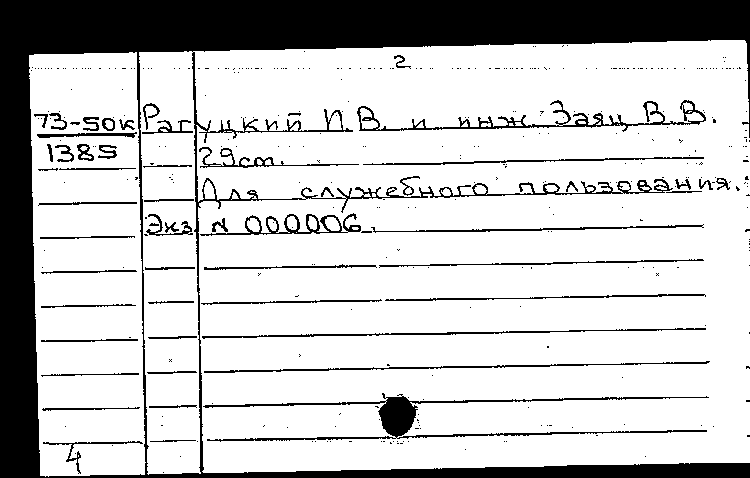 2
73-50к Рагуцкий П.В. и инж. Заяц В.В.
1385 29 см.
Для служебного пользования.
Экз. N 000006.
4